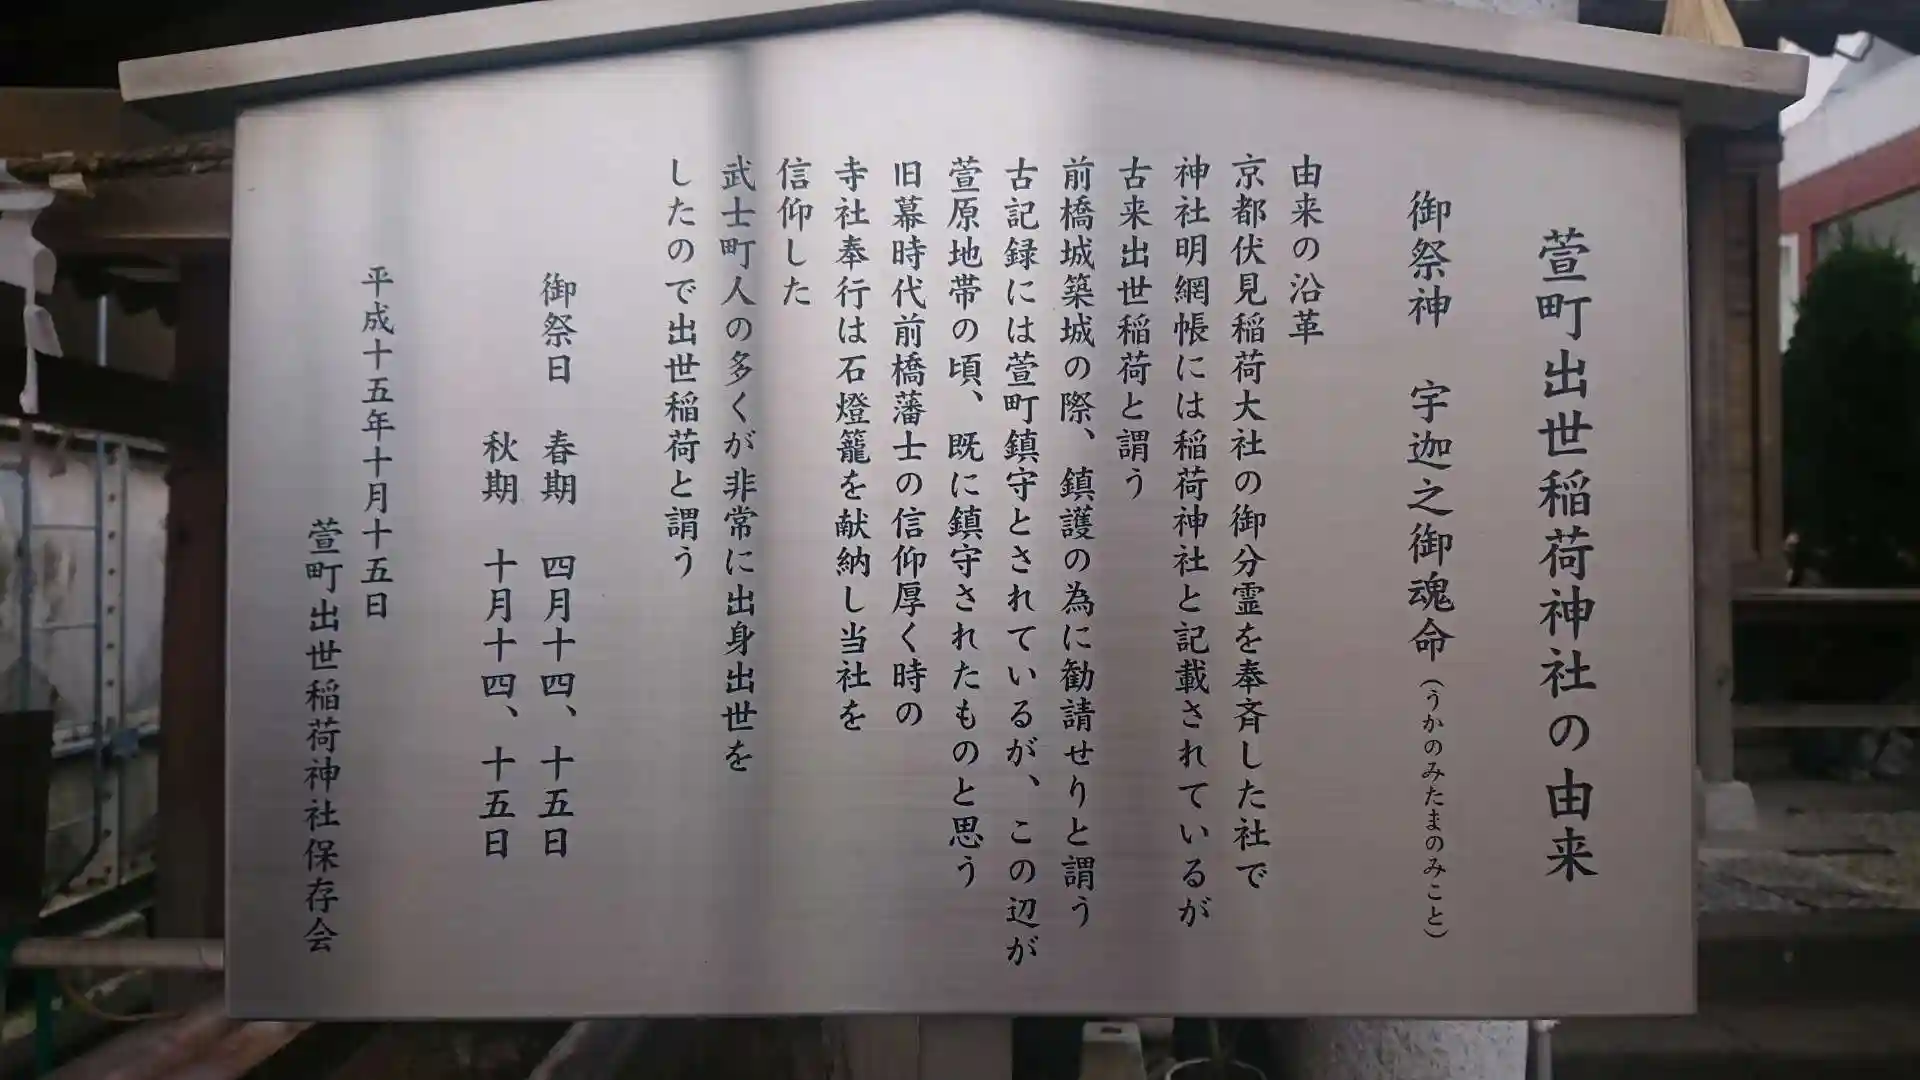 萱町出世稲荷神社の由来
御祭神 宇迦之御魂命(うかのみたまのみこと)
由来の沿革
京都伏見稲荷大社の御分霊を奉斉した社で
神社明網帳には稲荷神社と記載されているが
古来出世稲荷と謂う
前橋城築城の際、鎮護の為に勧請せりと謂う
古記録には萱町鎮守とされているが、この辺が
萱原地帯の頃、既に鎮守されたものと思う
旧幕時代前橋藩士の信仰厚く時の
寺社奉行は石燈籠を献納し当社を
信仰した
武士町人の多くが非常に出身出世を
したので出世稲荷と謂う
御祭日 春期 四月十四、十五日
秋期 十月十四、十五日
平成十五年十月十五日
萱町出世稲荷神社保存会